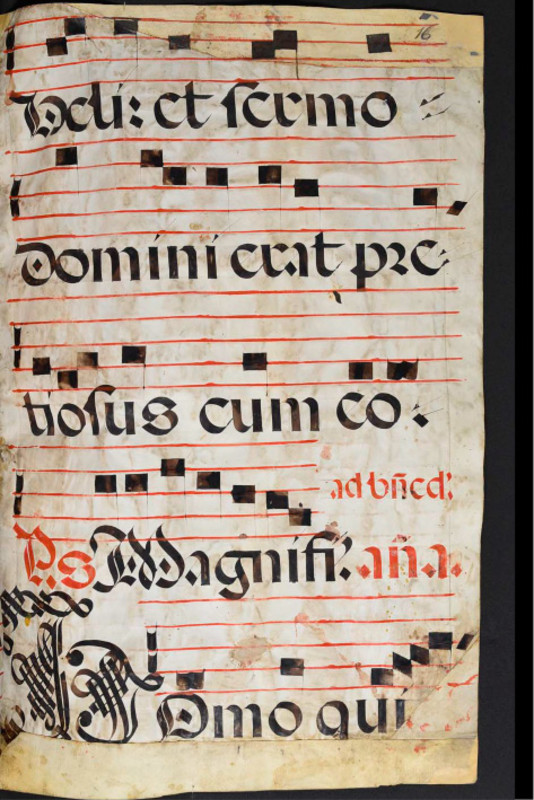 16
heli: et sermo
Domini erat pre
tiosus cum co:
ad bñed:
Ps Magnifi: aña.
Homo qui